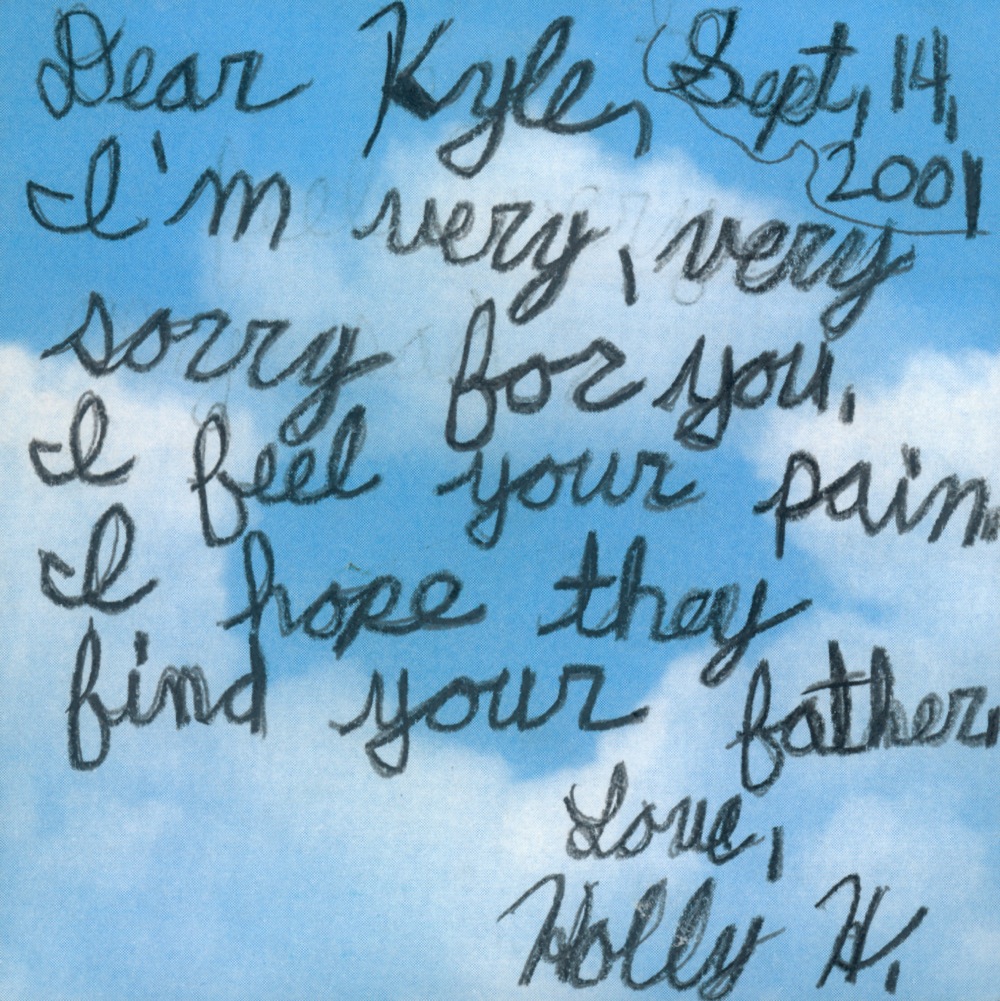 Dear Kyle, Sept, 14,
2001
I'm very, very
sorry for you.
I feel your pain.
I hope they
find your father.
Love,
Holly H.